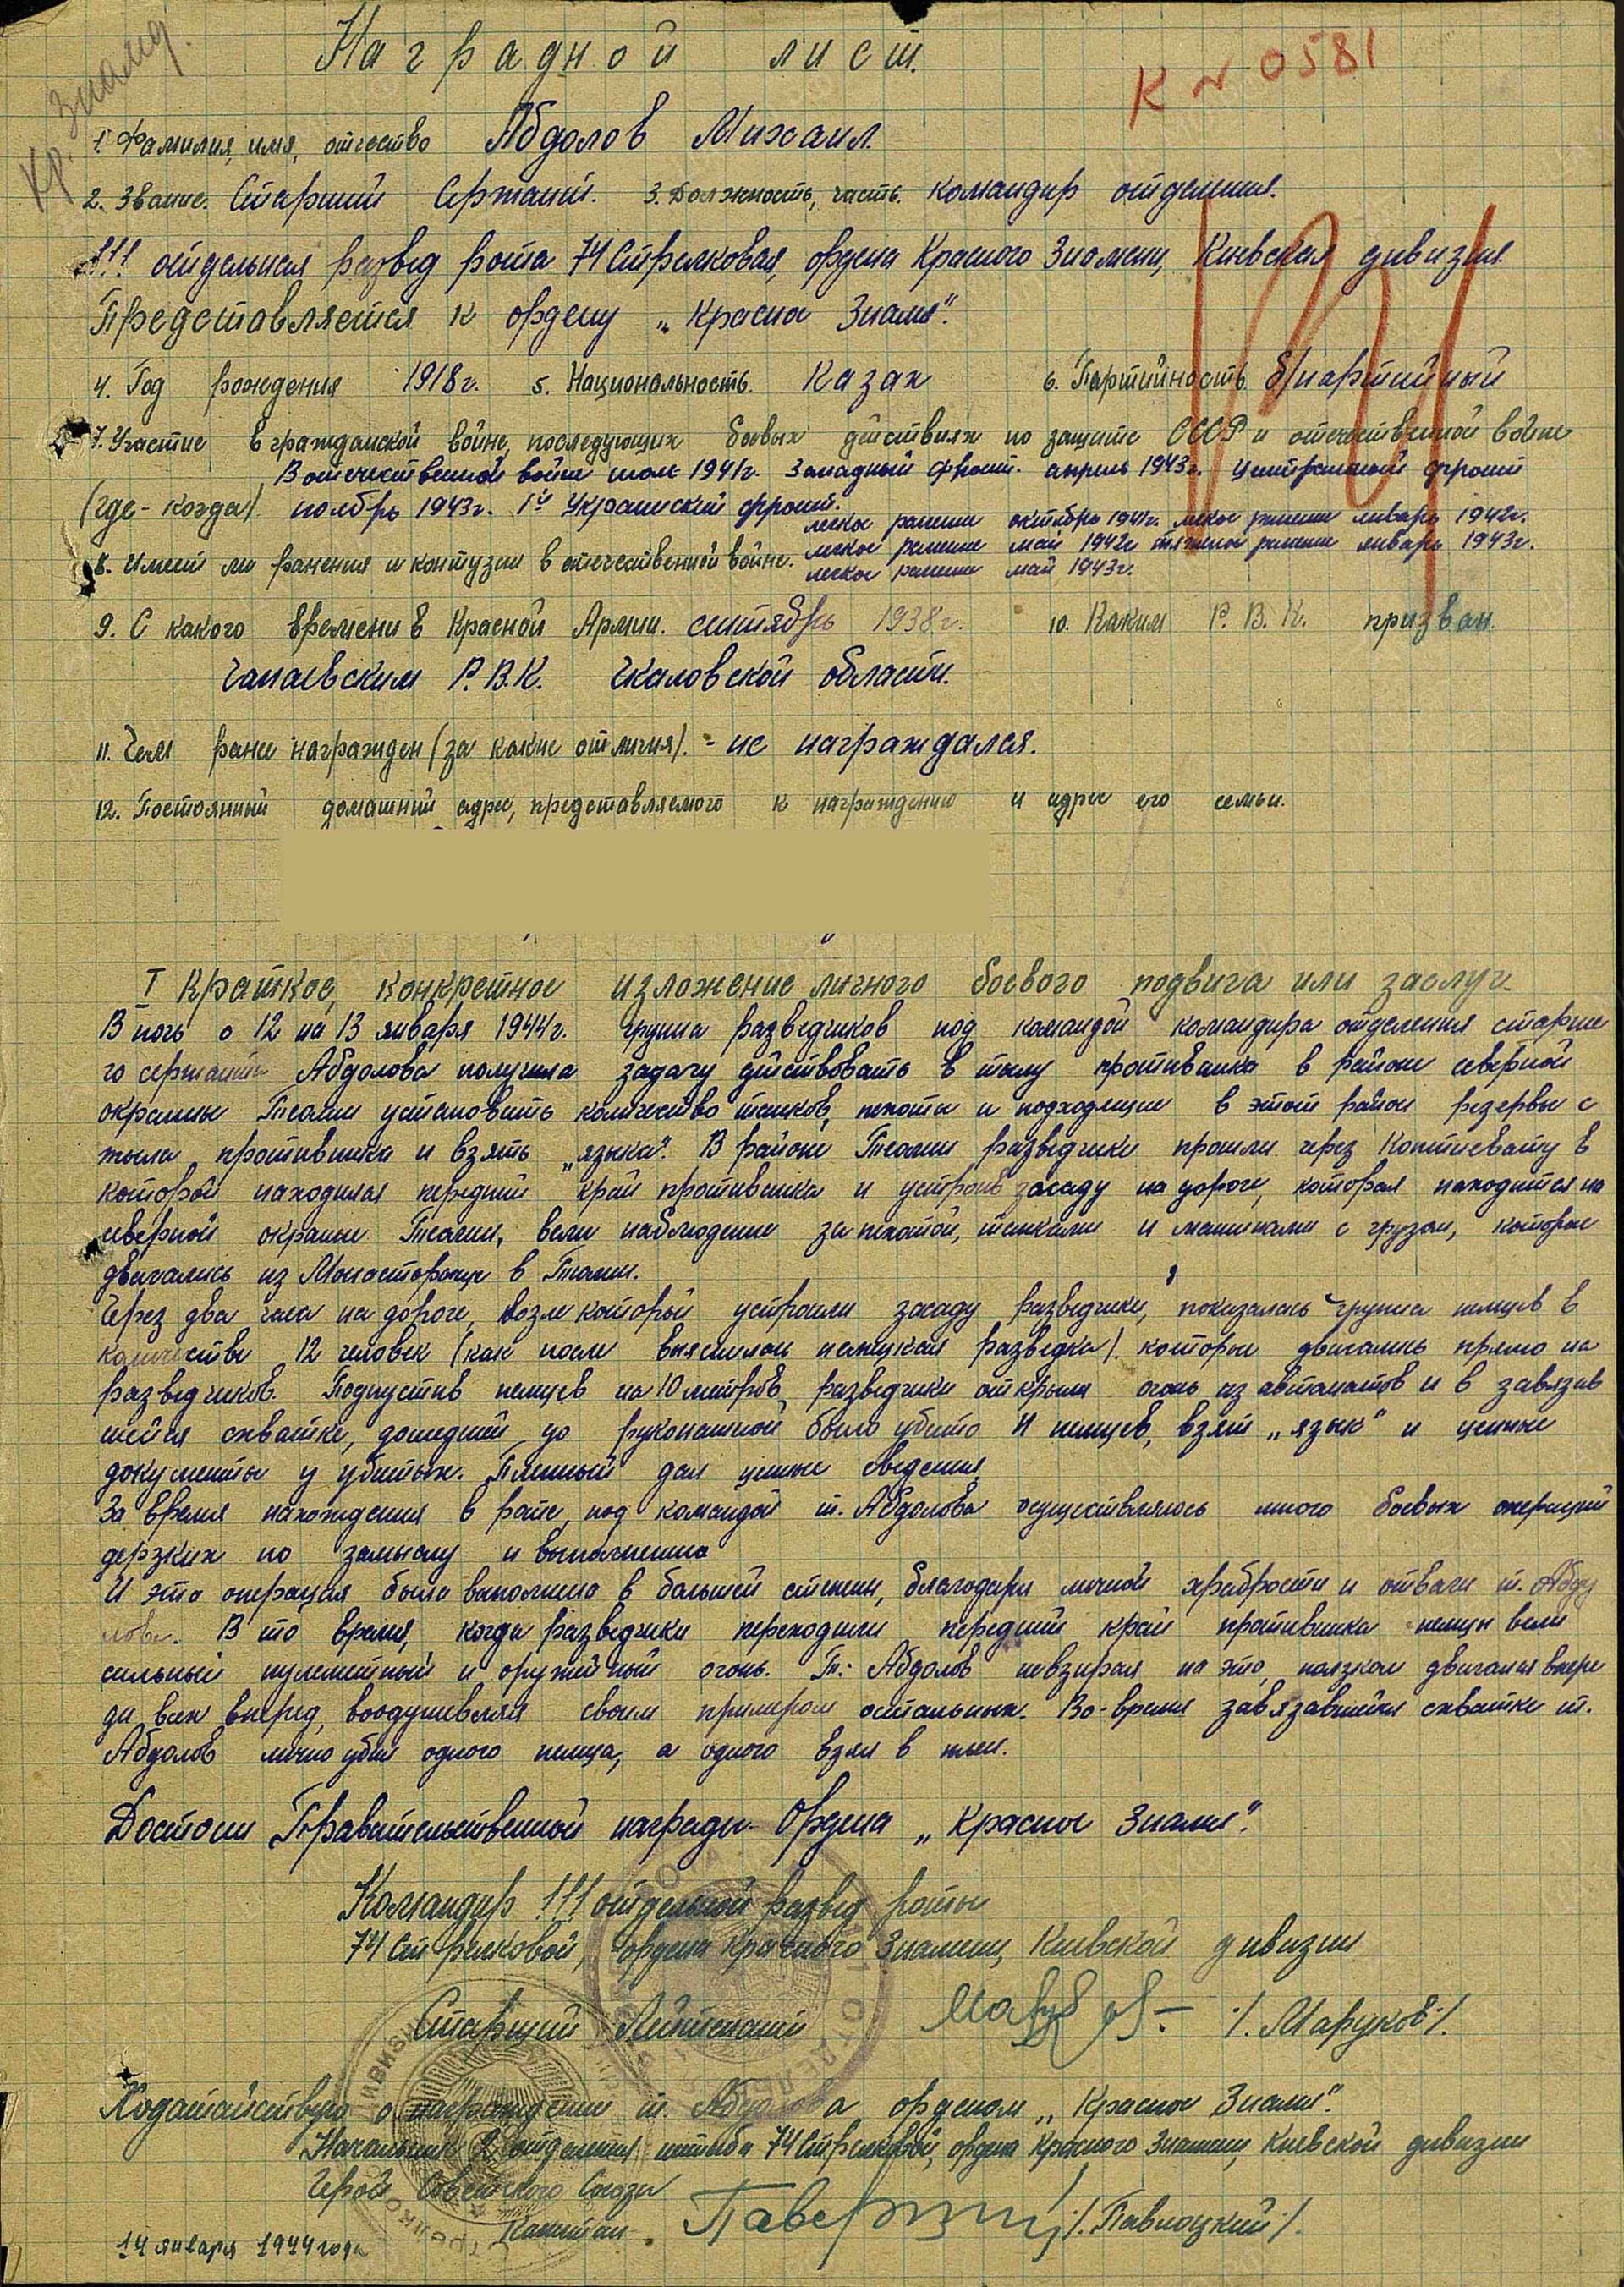 Кр. Знамя.
Наградной лист.
К № 0581
1. Фамилия, имя, отчество Абдолов Михаил.
2. Звание. Старший Сержант. 3. Должность, часть. командир отделения.
111 отдельная развед рота 74 Стрелковая, ордена Красного Знамени, Киевская дивизия
Представляется к ордену „Красна Знамя".
4. Год рождения 1918 г. 5. Национальность. Казах 6. Партийность б/партийный
7. Участие в гражданской войне, последующих боевых действиях по защите СССР и отечественной войне
В отечественной войне июль 1941 г. Западный фронт. апрель 1943 г. Центральный фронт
(где-когда) ноябрь 1943 г. 1й Украинский фронт.
легкое ранение октябрь 1941 г. легкое ранение январь 1942 г.
легкое ранение май 1942 г тяжелое ранение январь 1943 г.
8. Имеет ли ранения и контузии в отечественной войне.
легкое ранение май 1943 г.
9. С какого времени в Красной Армии. сентябрь 1938 г. 10. Каким Р.В.К. призван
Чапаевским Р.В.К. Чкаловской области.
11. Чем ранее награжден (за какие отличия). - не награждался.
12. Постоянный домашний адрес, представляемого к награждению и адрес его семьи.
I Краткое, конкретное изложение личного боевого подвига или заслуг.
В ночь с 12 на 13 января 1944 г. группа разведчиков под командой командира отделения старше
го сержанта Абдолова получила задачу действовать в тылу противника в районе северной
окраины Теолин установить количество танков, пехоты и подходящие в этот район резервы с
тыла противника и взять „языка". В районе Теолин разведчики прошли через в
которой находился передний край противника и устроив засаду на дороге, которая находится на
северной окраине Теолин, вели наблюдение за пехотой, танками и машинами с грузом, которые
двигались из в Теолин.
Через два часа на дороге, возле которой устроили засаду разведчики, показалась группа немцев в
количестве 12 человек (как после выяснилось немецкая разведка). которые двигались прямо на
разведчиков. Подпустив немцев на 10 метров, разведчики открыли огонь из автоматов и в завязав
шейся схватке, дошедшей до рукопашной было убито 11 немцев, взят „язык" и ценные
документы у убитых. Пленный дал ценные сведения
За время нахождения в роте, под командой т. Абдолова осуществлялось много боевых операций
дерзких по замыслу и выполнению
И эта операция была выполнена в большей степени, благодаря личной храбрости и отваги т. Абдо
лова. В то время, когда разведчики переходили передний край противника немцы вели
сильный пулеметный и оружейный огонь. Т. Абдолов невзирая на это, ползком двигался впере
ди всех вперед, воодушевляя своим примером остальных. Во-время завязавшейся схватке т.
Абдолов лично убил одного немца, а одного взял в плен.
Достоин Правительственной награды Ордена „Красное Знамя".
Командир 111 отдельной развед роты
74 Стрелковой, ордена Красного Знамени, Киевской дивизии
Старший Лейтенант /. Маруков ./.
Ходатайствую о награждении т. Абдолова орденом „Красное Знамя".
Начальник 2 отделения штаба 74 Стрелковой, ордена Красного Знамени, Киевской дивизии
Герой Советского Союза
Капитан /. Павлоцкий /.
14 января 1944 года